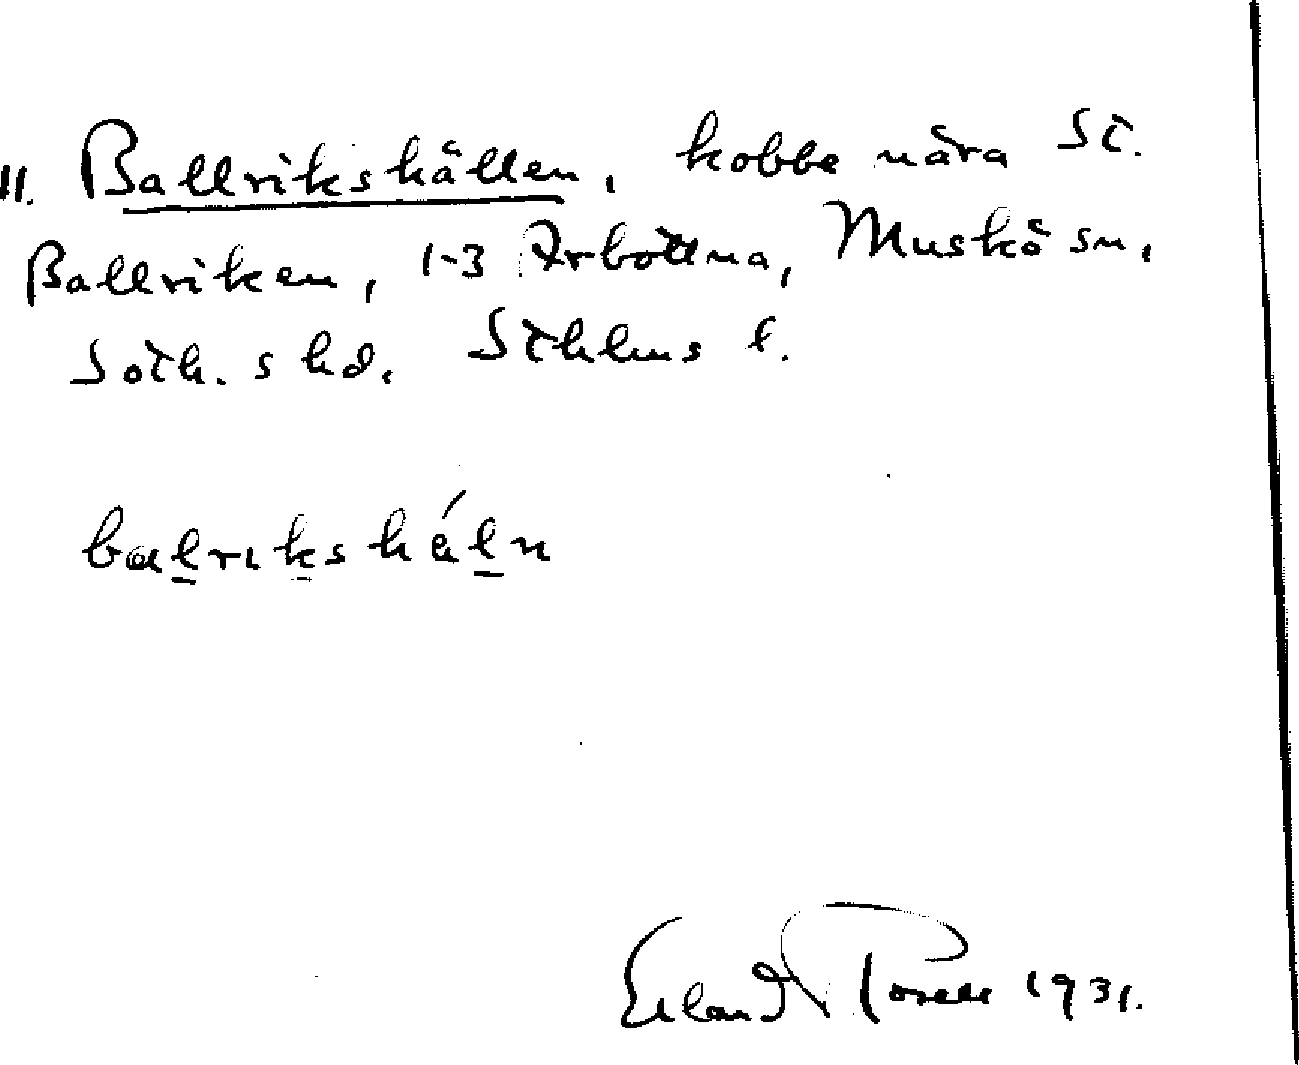 11. Ballrikskällen, kobbe nära St.
Ballriken, 1-3 Arbottna, Muskö sn,
Soth. s hd. Sthlms l.
balrikshäln
Erland Rosell 1931.